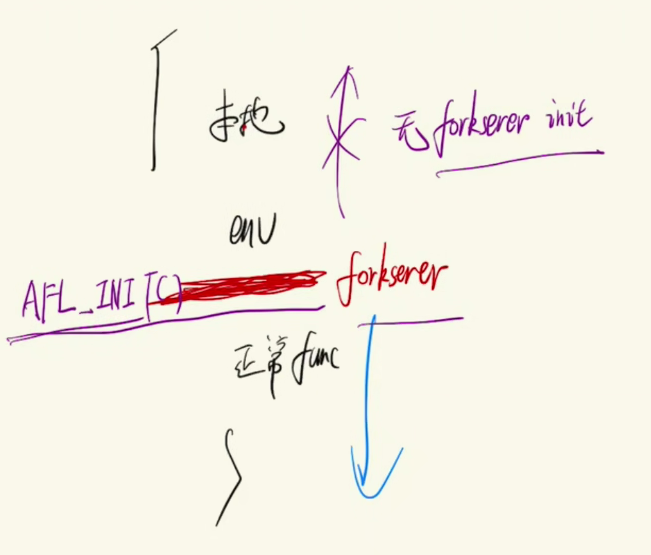 本地
无 forkserer init
env
AFL_INIT() forkserer
正常 func